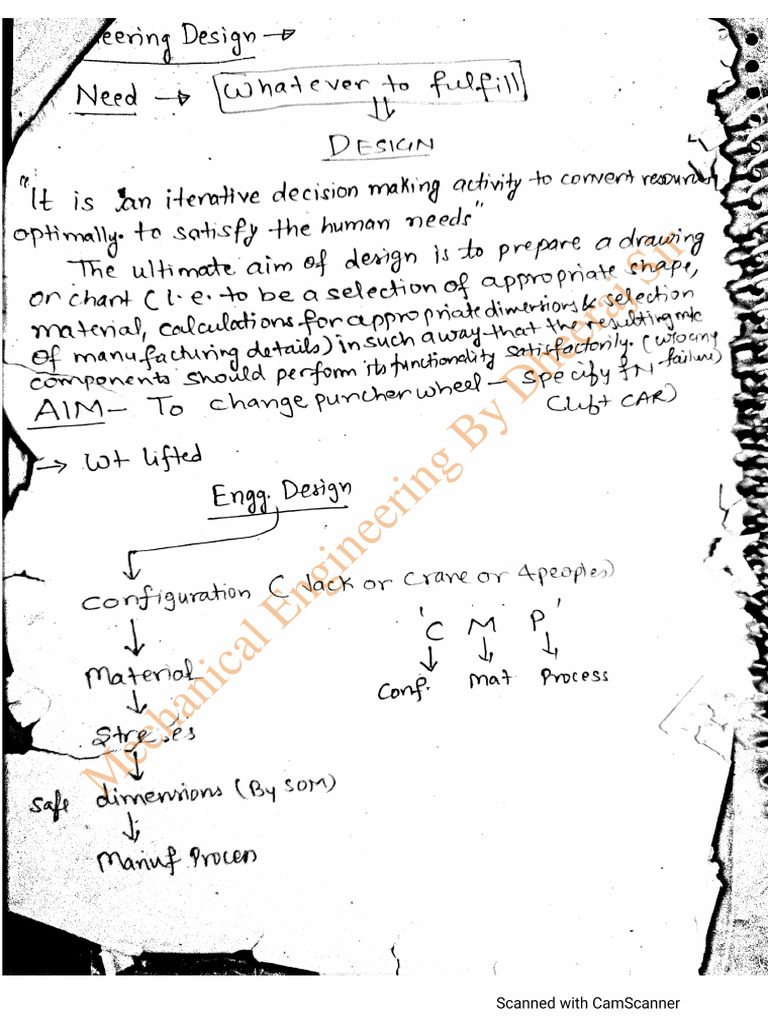 eering Design →
Need → Whatever to fulfill
⇓
DESIGN
"It is an iterative decision making activity to convert resources
optimally. to satisfy the human needs"
The ultimate aim of design is to prepare a drawing
or chart (i.e. to be a selection of appropriate shape,
material, calculations for appropriate dimensions & selection
of manufacturing details) in such a way that the resulting m/c
components should perform its functionality satisfactorily. (w/o any failure)
AIM - To change puncher wheel - specify fN
(Lift CAR)
→ Wt lifted
Engg. Design
↓
Configuration ( Jack or Crane or 4 peoples)
↓
Material
↓
Stresses
↓
Safe dimensions (By SOM)
↓
Manuf Process
'C M P'
↓ ↓ ↓
Conf. Mat Process
Mechanical Engineering By Dheeraj Sir
Scanned with CamScanner